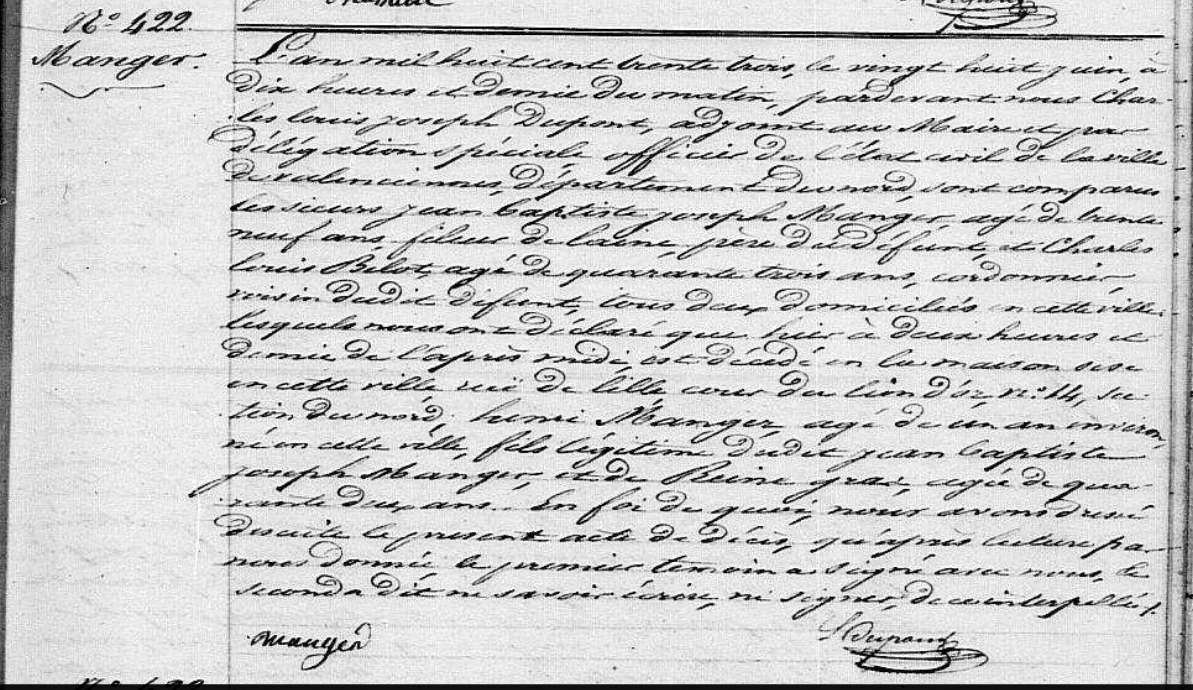 N.º 422.
Manger.
L'an mil huit cent trente trois, le vingt huit juin, à
dix heures et demie du matin, pardevant nous Char-
les louis joseph Dupont, adjoint au Maire et par
délégation spéciale officier de l'état civil de la ville
de valenciennes, département du nord, sont comparus
les sieurs jean baptiste joseph Manger, agé de trente
neuf ans, fileur de laine, père du défunt, et Charles
louis Belot, agé de quarante trois ans, cordonnier,
voisin dudit défunt, tous deux domiciliés en cette ville;
lesquels nous ont déclaré que hier à deux heures et
demie de l'après midi, est décédé en la maison sise
en cette ville rue de lille, cour du lion d'or, n.º 14, sec-
tion du nord, henri Manger, agé de un an environ,
né en cette ville, fils légitime dudit jean baptiste
joseph Manger, et de Reine , agée de qua-
rante deux ans. En foi de quoi, nous avons dressé
de suite le présent acte de décès, qu'après lecture par
nous donnée le premier témoin a signé avec nous, le
second a dit ne savoir écrire, ni signer, de ce interpellé ./.
manger
Dupont